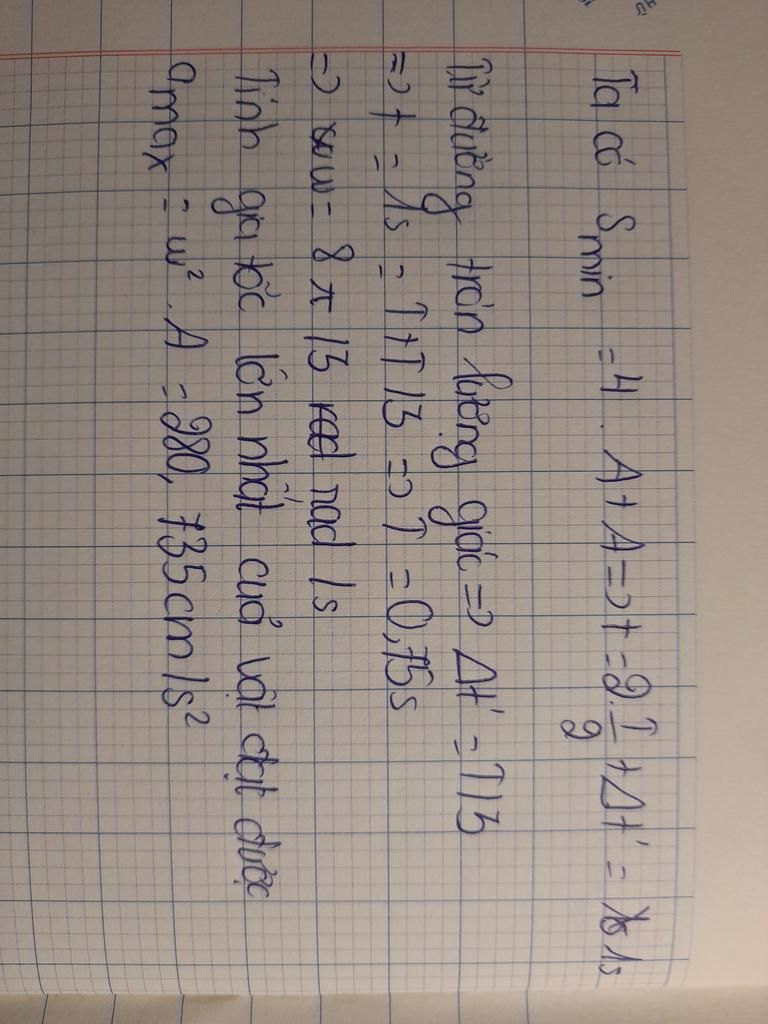 Ta có Smin = 4 . A + A => t = 2. T/2 + Δt' = 1s
Từ đường tròn lượng giác => Δt' = T/3
=> t = 1s = T + T/3 => T = 0,75s
=> w = 8π/3 rad/s
Tính gia tốc lớn nhất của vật đạt được
amax = w² . A = 280,735cm/s²